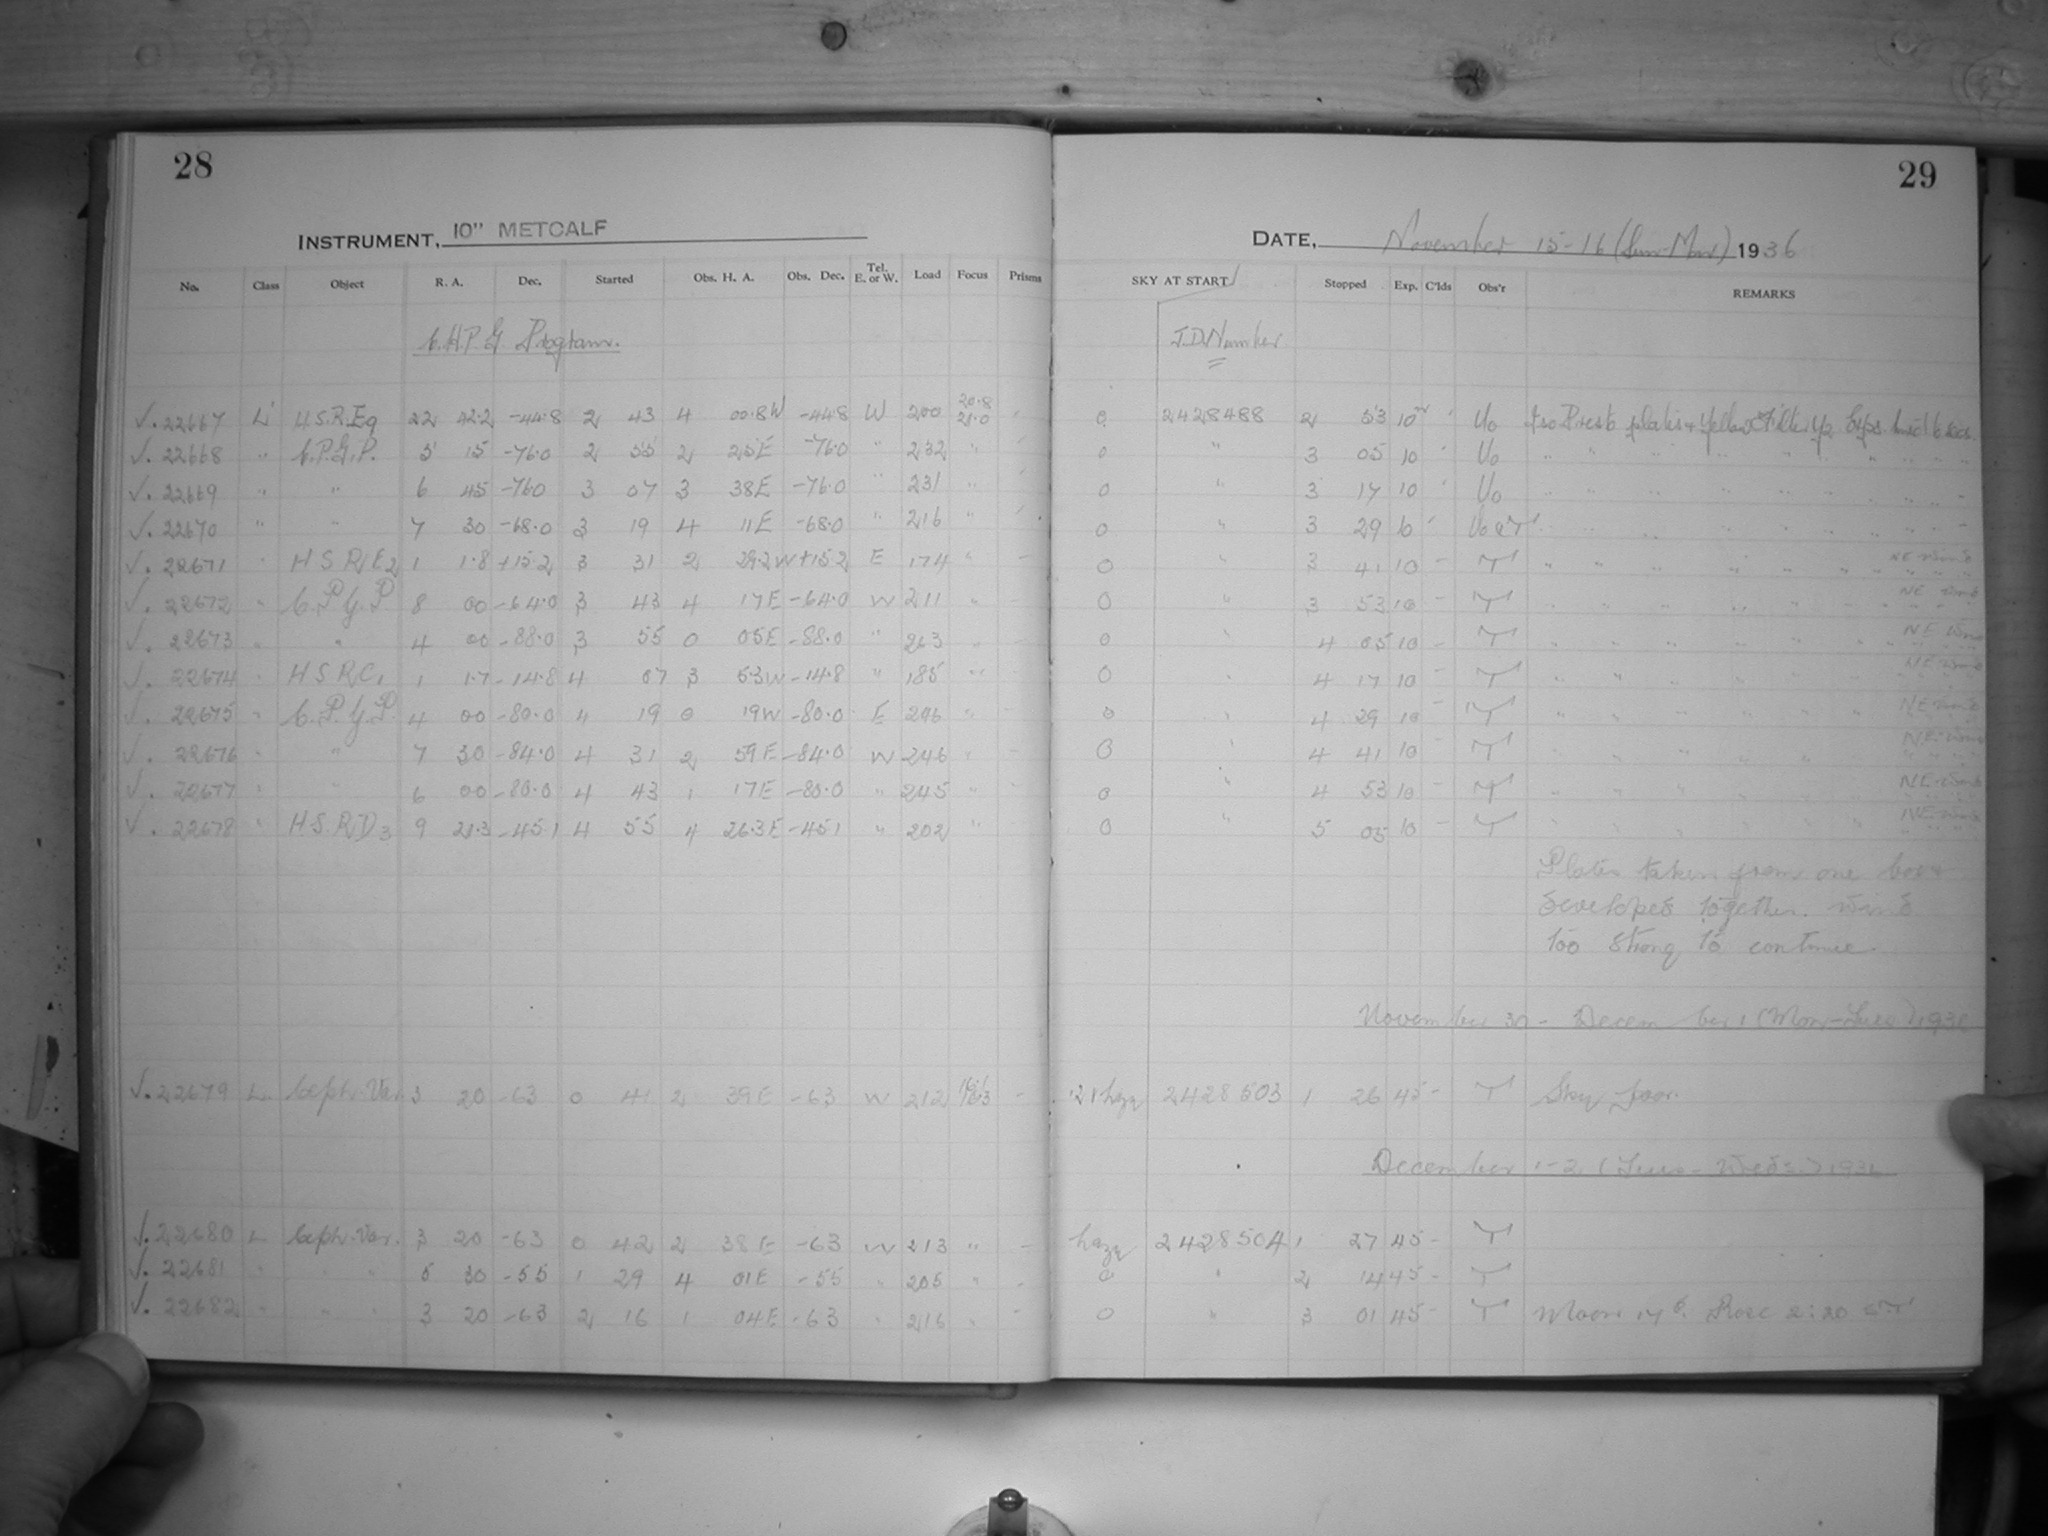 28
29
INSTRUMENT, 10" METCALF
DATE, November 15-16 (Sun-Mon) 1936
No. Class Object R. A. Dec. Started Obs. H. A. Obs. Dec. Tel. E. or W. Load Focus Prisms SKY AT START Stopped Exp. C'lds Obs'r REMARKS
Program. J.D. Number
√. 22667 H.S.R. 22 42.2 -44.8 2 43 4 00.8W -44.8 W 200 20.8 21.0 0 2428488 2 53 10 Uo plates & Yellow Filter
√. 22668 " C.P.G.P. 5 15 -76.0 2 55 2 25E -76.0 " 232 " 0 " 3 05 10 Uo " " " " " "
√. 22669 " " 6 45 -76.0 3 07 3 38E -76.0 " 231 " 0 " 3 17 10 Uo " " " " " "
√. 22670 " " 7 30 -68.0 3 19 4 11E -68.0 " 216 " 0 " 3 29 10 Uo & T " " " " "
√. 22671 " H S R E2 1 1.8 +15.2 3 31 2 29.2W +15.2 E 174 " - 0 " 3 41 10 - T " " " " " NE wind
√. 22672 " C.P.G.P 8 00 -64.0 3 43 4 17E -64.0 W 211 " - 0 " 3 53 10 - T " " " " " NE wind
√. 22673 " " 4 00 -88.0 3 55 0 05E -88.0 " 263 " - 0 " 4 05 10 - T " " " " " NE wind
√. 22674 " H S R C1 1 1.7 -14.8 4 07 3 53W -14.8 " 185 " - 0 " 4 17 10 - T " " " " " NE wind
√. 22675 " C.P.G.P 4 00 -80.0 4 19 0 19W -80.0 E 246 " - 0 " 4 29 10 - T " " " " " NE wind
√. 22676 " " 7 30 -84.0 4 31 2 59E -84.0 W 246 " - 0 " 4 41 10 - T " " " " " NE wind
√. 22677 " " 6 00 -80.0 4 43 1 17E -80.0 " 245 " - 0 " 4 53 10 - T " " " " " NE wind
√. 22678 " H.S.R D3 9 21.3 -45.1 4 55 4 26.3E -45.1 " 202 " - 0 " 5 05 10 - T " " " " " NE wind
Plates taken from one box &
developed together. Wind
too strong to continue.
November 30 - December 1 (Mon-Tues) 1936
√. 22679 L Ceph. Var. 3 20 -63 0 41 2 39E -63 W 212 - haze 2428503 1 26 45 - T Sky poor.
December 1-2 (Tues-Weds.) 1936
√. 22680 L Ceph. Var. 3 20 -63 0 42 2 38E -63 W 213 " - haze 2428504 1 27 45 - T
√. 22681 " " " 5 30 -55 1 29 4 01E -55 " 205 " - 0 " 2 14 45 - T
√. 22682 " " " 3 20 -63 2 16 1 04E -63 " 216 " - 0 " 3 01 45 - T Moon Rose 2:20 ST